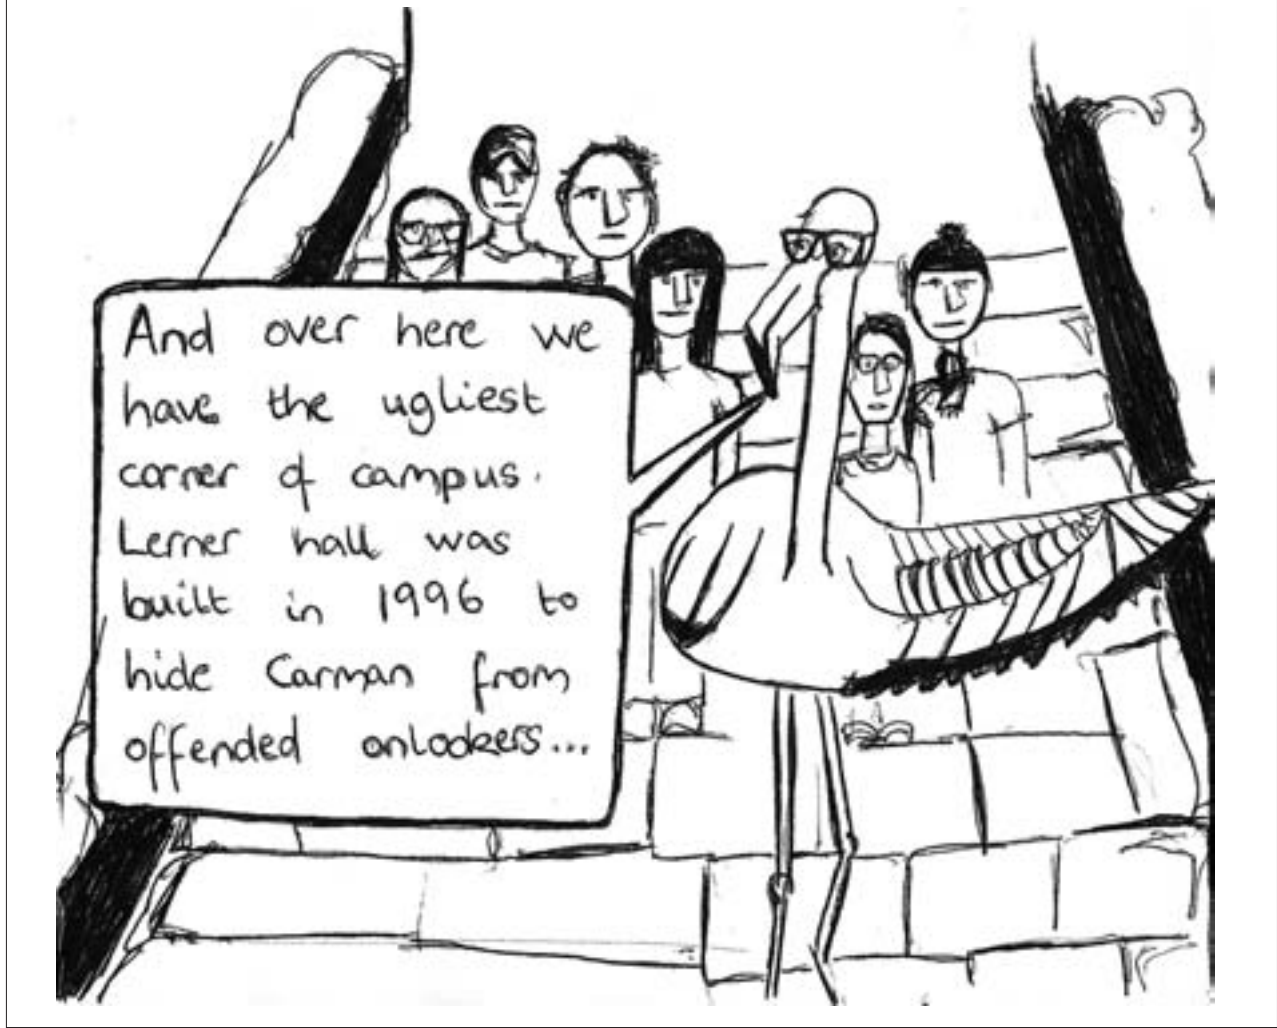 And over here we
have the ugliest
corner of campus.
Lerner hall was
built in 1996 to
hide Carman from
offended onlookers...